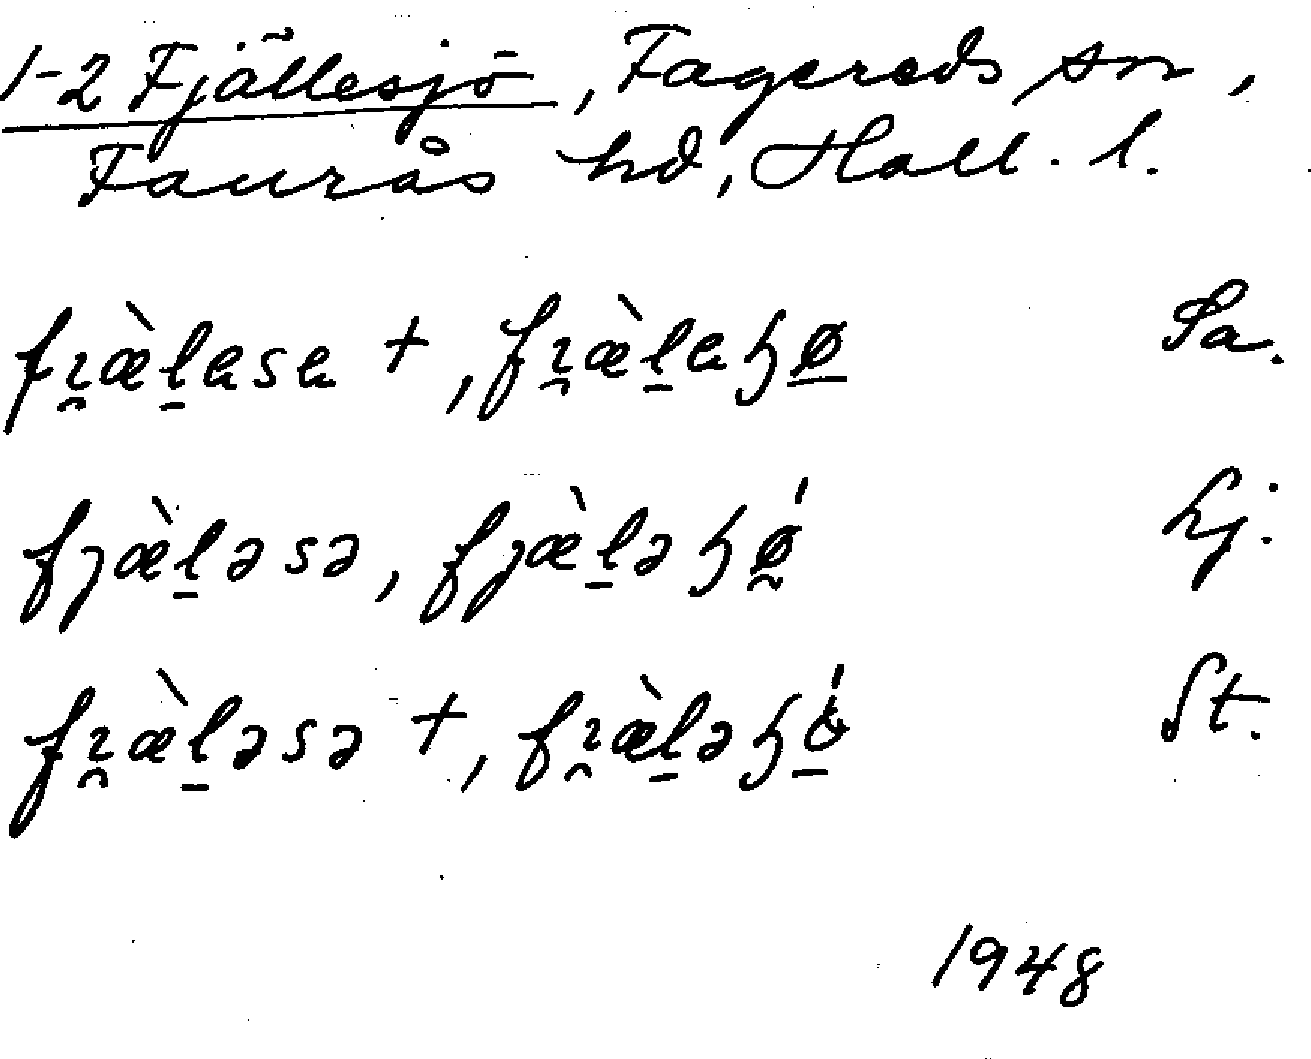 1-2 Fjällesjö, Fagereds sn,
Faurås hd, Hall. l.
fɪ̯æ̀l̠ɐsɐ +, fɪ̯æ̀l̠ɐɧø̠ Sa.
fjæ̀l̠əsə, fjæ̀l̠əɧǿ̰ Hj.
fɪ̯æ̀l̠əsə +, fɪ̯æ̀l̠əɧ St.
1948